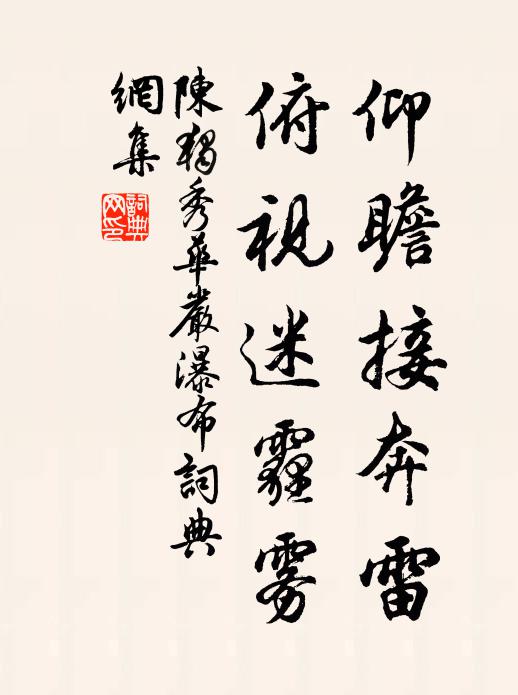 仰瞻接奔雷
俯視迷霾雾
陳獨秀華嚴瀑布詞典
網集
詞典
网印